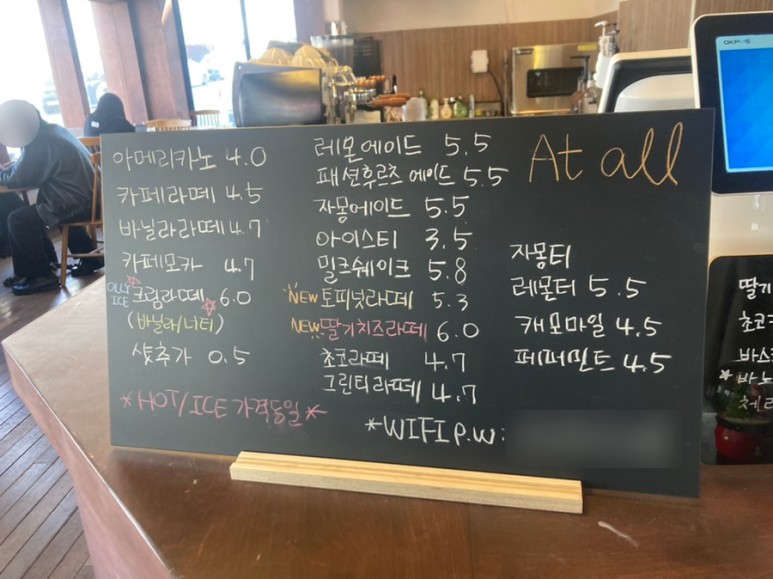 At all
아메리카노 4.0
카페라떼 4.5
바닐라라떼 4.7
카페모카 4.7
ONLY ICE 크림라떼 6.0
(바닐라/너티)
샷추가 0.5
*HOT/ICE 가격동일*
레몬에이드 5.5
패션후르츠에이드 5.5
자몽에이드 5.5
아이스티 3.5
밀크쉐이크 5.8
NEW 토피넛라떼 5.3
NEW 딸기치즈라떼 6.0
초코라떼 4.7
그린티라떼 4.7
자몽티
레몬티 5.5
캐모마일 4.5
페퍼민트 4.5
*WIFI P.W:
OKPOS
딸기
초코